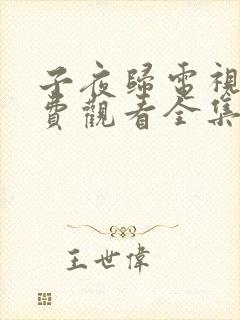 子夜歸電視
費觀看全集
王世偉